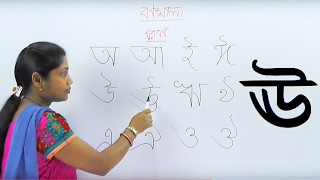 বর্ণমালা
স্বরবর্ণ
অ আ ই ঈ
উ ঊ ঋ
এ ঐ ও ঔ
ঊ